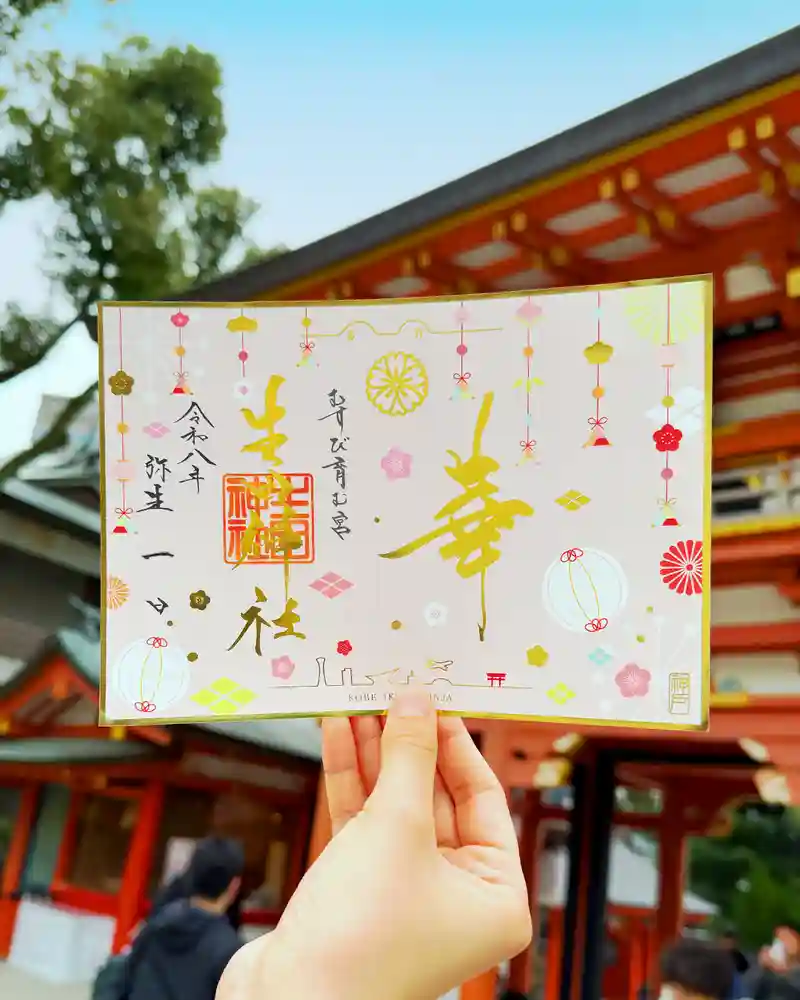 華
むすび育む宮
生田神社
生田神社
令和八年
弥生一日
神戸
KOBE IKUTA JINJA